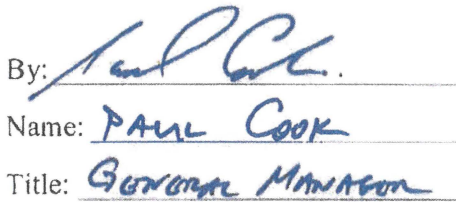 By: Paul Cook.
Name: PAUL COOK
Title: GENERAL MANAGER